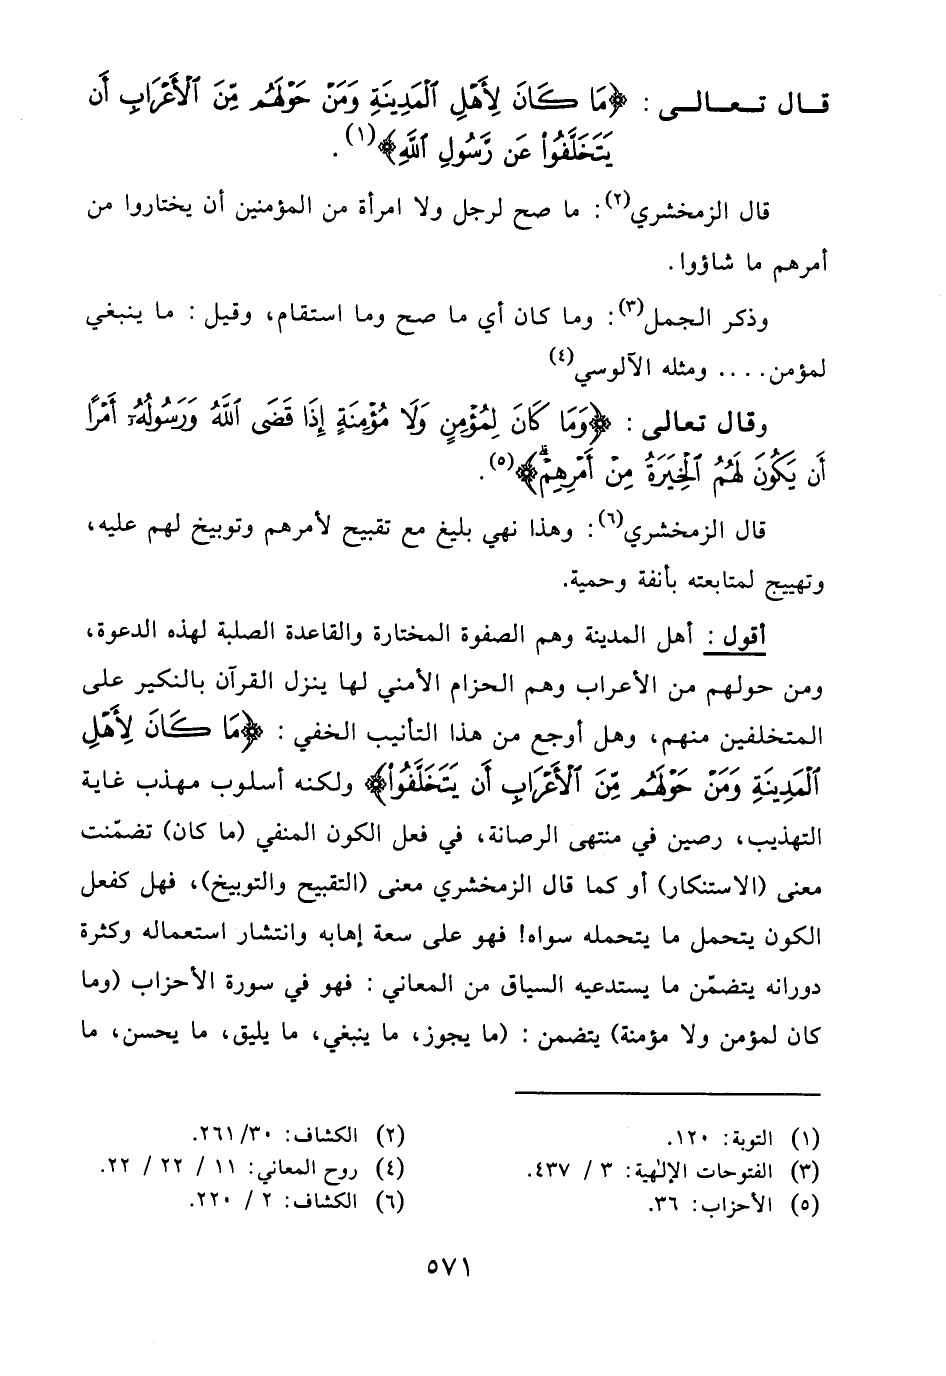 قال تعالى : ﴿مَا كَانَ لِأَهْلِ ٱلْمَدِينَةِ وَمَنْ حَوْلَهُم مِّنَ ٱلْأَعْرَابِ أَن
يَتَخَلَّفُوا۟ عَن رَّسُولِ ٱللَّهِ﴾(١).
قال الزمخشري(٢): ما صح لرجل ولا امرأة من المؤمنين أن يختاروا من
أمرهم ما شاؤوا.
وذكر الجمل(٣): وما كان أي ما صح وما استقام، وقيل : ما ينبغي
لمؤمن.... ومثله الآلوسي(٤)
وقال تعالى : ﴿وَمَا كَانَ لِمُؤْمِنٍ وَلَا مُؤْمِنَةٍ إِذَا قَضَى ٱللَّهُ وَرَسُولُهُۥٓ أَمْرًا
أَن يَكُونَ لَهُمُ ٱلْخِيَرَةُ مِنْ أَمْرِهِمْۗ﴾(٥).
قال الزمخشري(٦): وهذا نهي بليغ مع تقبيح لأمرهم وتوبيخ لهم عليه،
وتهييج لمتابعته بأنفة وحمية.
أقول : أهل المدينة وهم الصفوة المختارة والقاعدة الصلبة لهذه الدعوة،
ومن حولهم من الأعراب وهم الحزام الأمني لها ينزل القرآن بالنكير على
المتخلفين منهم، وهل أوجع من هذا التأنيب الخفي : ﴿مَا كَانَ لِأَهْلِ
ٱلْمَدِينَةِ وَمَنْ حَوْلَهُم مِّنَ ٱلْأَعْرَابِ أَن يَتَخَلَّفُوا۟﴾ ولكنه أسلوب مهذب غاية
التهذيب، رصين في منتهى الرصانة، في فعل الكون المنفي (ما كان) تضمّنت
معنى (الاستنكار) أو كما قال الزمخشري معنى (التقبيح والتوبيخ)، فهل كفعل
الكون يتحمل ما يتحمله سواه! فهو على سعة إهابه وانتشار استعماله وكثرة
دورانه يتضمّن ما يستدعيه السياق من المعاني : فهو في سورة الأحزاب (وما
كان لمؤمن ولا مؤمنة) يتضمن : (ما يجوز، ما ينبغي، ما يليق، ما يحسن، ما
(١) التوبة: ١٢٠.
(٢) الكشاف: ٢٦١/٣٠.
(٣) الفتوحات الإلٰهية: ٣ / ٤٣٧.
(٤) روح المعاني: ١١ / ٢٢ / ٢٢.
(٥) الأحزاب: ٣٦.
(٦) الكشاف: ٢ / ٢٢٠.
٥٧١